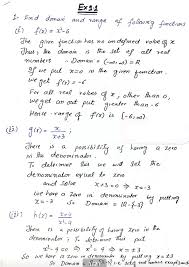 Ex 1.1
1. Find domain and range of following functions
(i) f(x) = x²-6
The given function has no undefined value of x
Thus the domain is the set of all real
numbers . Domain = (-∞,∞) = R
If we put x=0 in the given function,
we get = f(0) = -6
For all real values of x, other than 0,
we get an out put greater than -6
Hence Range of f(x) is [-6,∞)
(ii) g(x) = x/(x+3)
There is a possibility of having a zero
in the denominator.
To determine this we will set the
denominator equal to zero
and solve x+3=0 ⇒ x=-3
we have a zero in denominator by putting
x=-3 So Domain = {R-{-3}}
(iii) h(x) = /(x²-4)
There is a possibility of having zero in the
denominator. To determine this put
x²-4=0 ⇒ x²=4 ⇒ x=±2
So we have zero in denominator by putting x=±2
So Domain